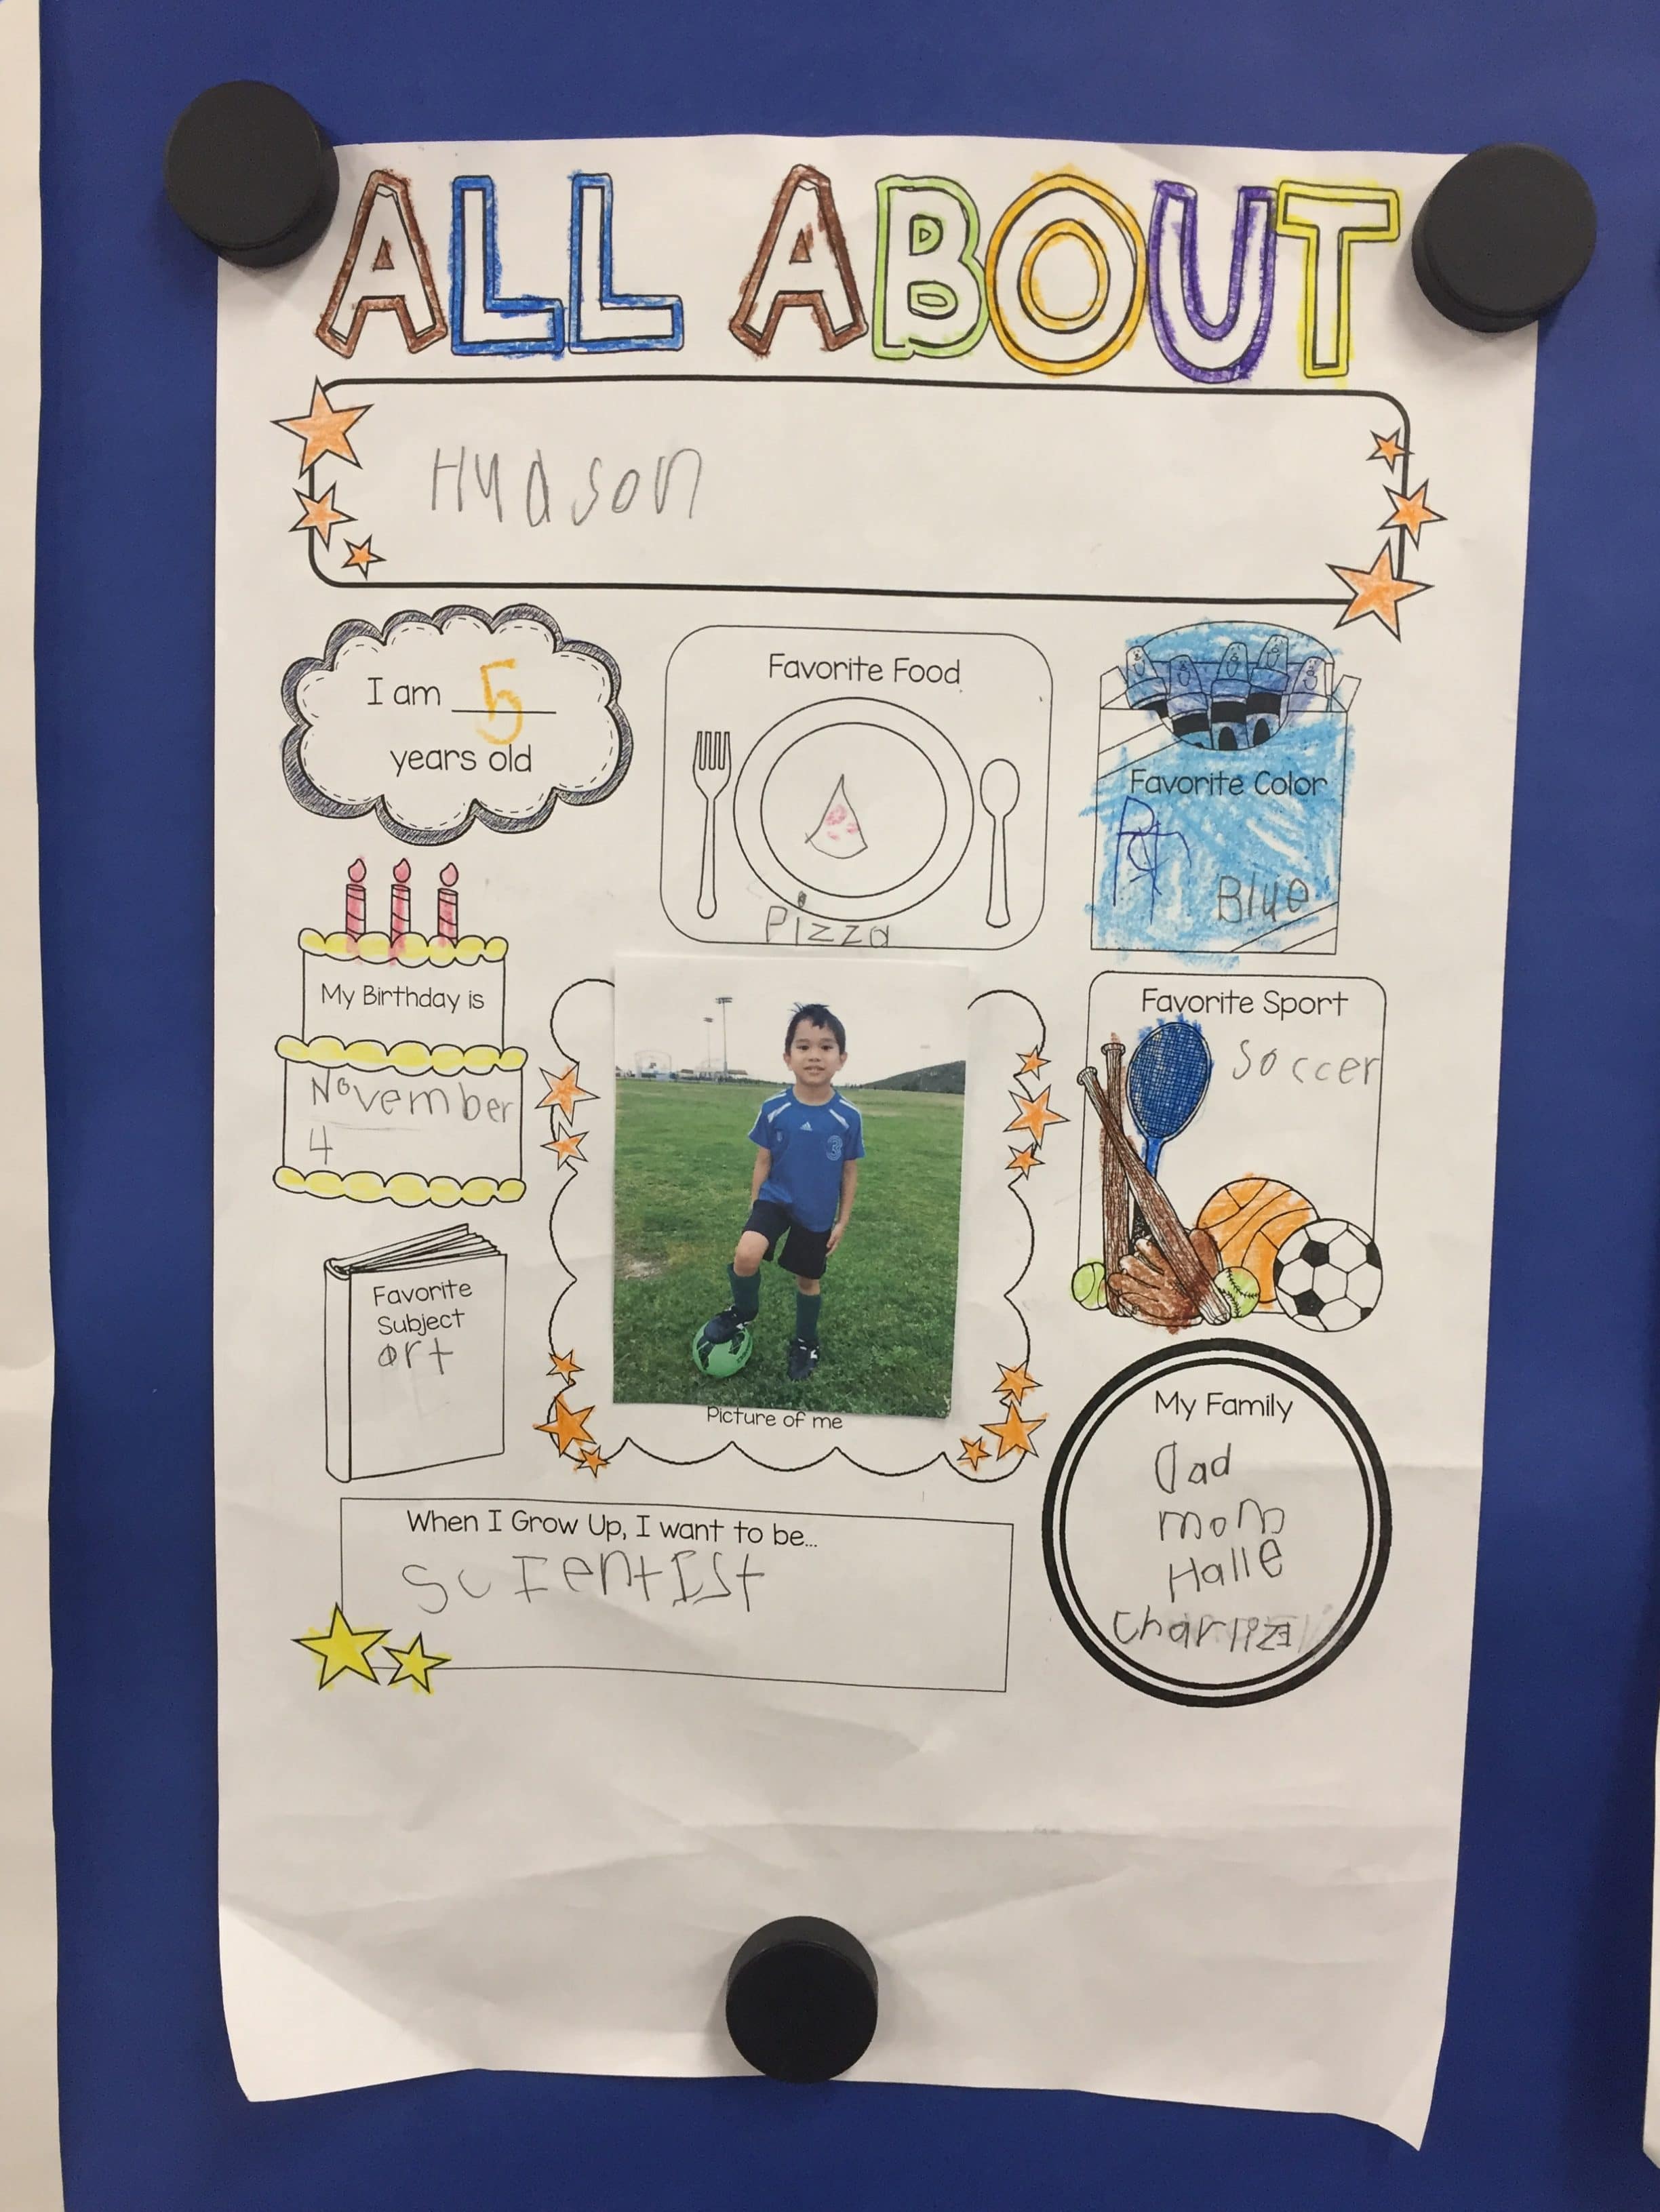 ALL ABOUT
Hudson
I am 5
years old
Favorite Food
Pizza
Favorite Color
Blue
My Birthday is
November
4
Favorite Sport
Soccer
3
Favorite
Subject
art
Picture of me
My Family
Dad
mom
Halle
Charlize
When I Grow Up, I want to be...
ScIentISt